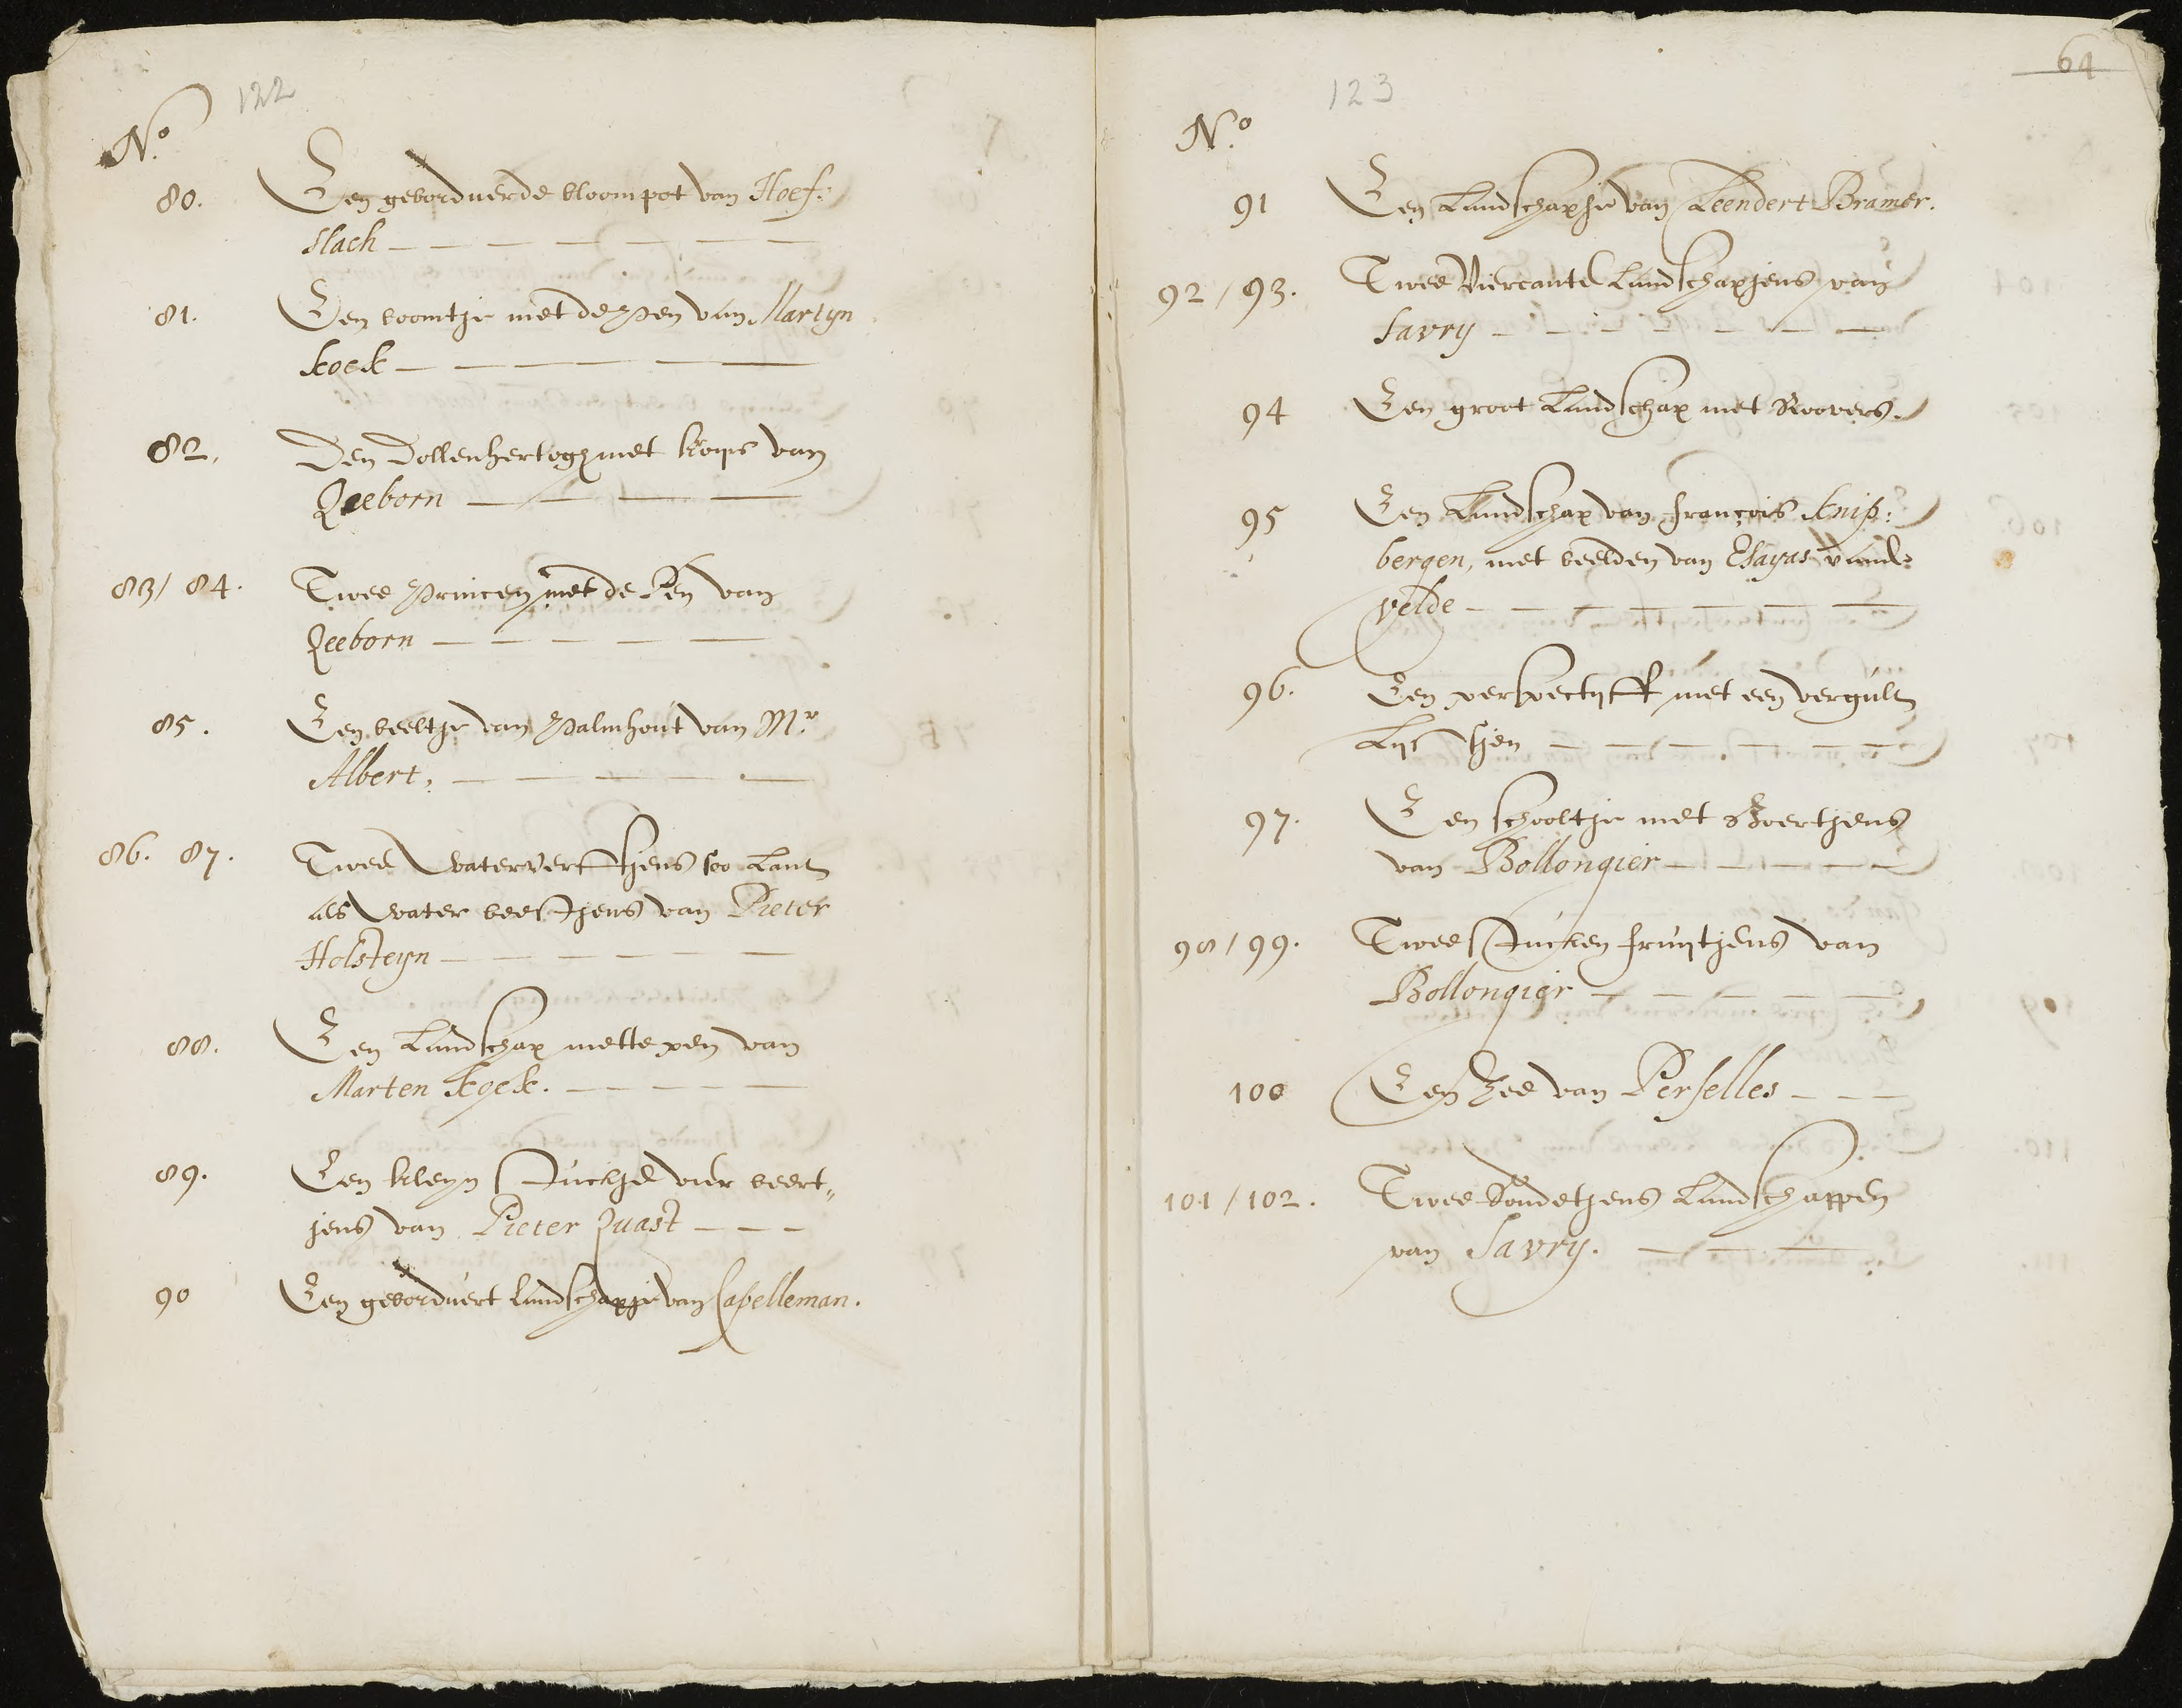 122
N.o
80. Een geborduerde bloompot van Hoef:
slach
81. Een boomtje met de pen van Martyn
kock
82. Den Dollenhertogh met krops van
Qeeborn
83/ 84. Twee Princen met de Pen van
Qeeborn
85. Een beeltje van Palmhout van Mr.
Albert,
86. 87. Twee watervertfjens soo Lant
als water beestjens van Pieter
Holsteyn
88. Een Landschap mette pen van
Marten kock.
89. Een kleyn stuckje vier beert„
jens van Pieter Quast
90 Een geborduert landschapje van Capelleman.
64
123
N.o
91 Een Landschapje van Leendert Bramer.
92/93. Twee Viercante Landschapjens van
Savry
94 Een groot Landschap met Roovers.
95 Een Landschap van françois knip:
bergen, met beelden van Esayas vande
velde
96. Een perspectyff met een vergult
Lystjen
97. Een schooltje met Boertjens
van Bollongier
98/99. Twee stucken fruytjens van
Bollongier
100 Een Zee van Perselles
101/102. Twee Rondetjens Landschappen
van Savry.